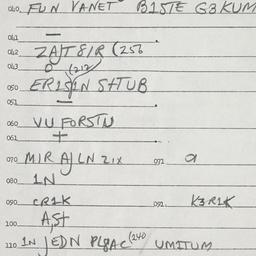 040 FUN VANET B15TE G3KUM
041 —
042 ZAJT8/R (256
043 0 (212
050 ER15IN S+TUB
051 —
060 VU FORSTN
061 +
070 MIR AJLN 21X 071 a
080 1N
090 CR1K 092 K3R1K
100 A,S+
110 1N JEDN PL8AC (240 UMITUM